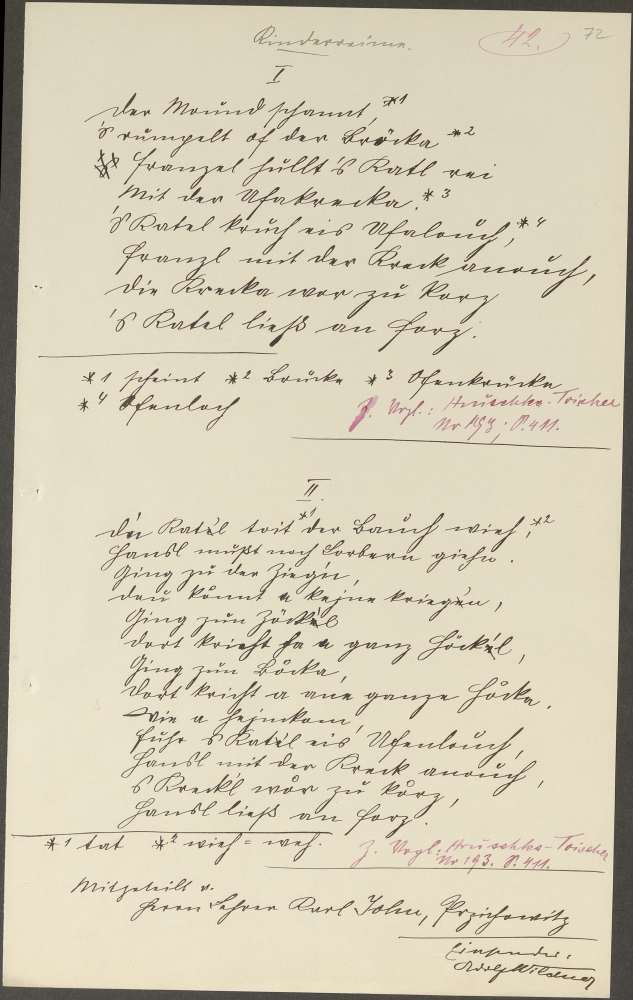 Kinderreime.
42.
72
I
Der Mound schannt *1
's rumpelt of der Bröcka *2
Franzel hullt 's Katl rei
Mit der Ufakrecka. *3
's Katel kruch eis Ufalouch, *4
Franzl mit der Kreck anouch,
Die Krecka wor zu korz
's Katel ließ an Forz.
*1 scheint *2 Brücke *3 Ofenkrücke
*4 Ofenloch
Vrgl.: Hruschka-Toischer
Nr 193; S. 411.
II.
Katel toit *1 der Bauch wieh, *2
Hansl mußt noch Lorbern giehn.
Ging zu der Ziegn,
dau konnt a kejne kriegen,
Ging zun
dort kricht a ganz
Ging zun Böcka,
Dort kricht a ane ganze Höcka.
Wie a hejmkom,
fuhr 's Katel eis Ufenlouch,
Hansl mit der Kreck anouch,
's Kreckl wor zu korz,
Hansl ließ an Forz.
*1 tat *2 wieh = weh.
z. Vrgl.: Hruschka-Toischer
Nr 193. S. 411.
Mitgeteilt v.
Herrn Lehrer Karl John, Przichowitz
Einsender:
Adolf Wildner